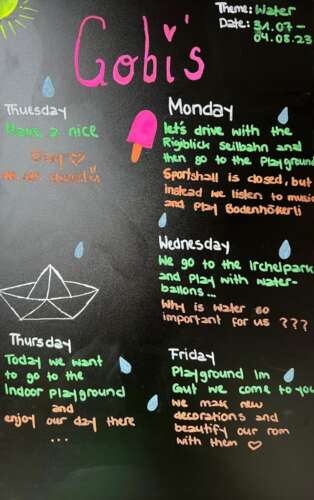 Gobi's
Theme: Water
Date: 31.07 –
04.08.23
Thuesday
Have a nice
Day ♡
we are closed
Monday
let's drive with the
Rigiblick Seilbahn and
then go to the Playground
Sportshall is closed, but
instead we listen to music
and play Bodenhökerli
Wednesday
We go to the Irchelpark
and Play with water-
ballons...
Why is water so
important for us ???
Thursday
Today we want
to go to the
Indoor Playground
and
enjoy our day there
...
Friday
Playground Im
Gut we come to you
we make new
decorations and
beautify our rom
with them ♡